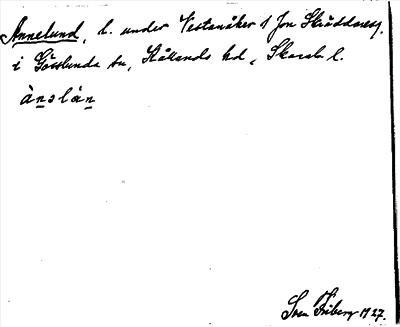 Annelund, l. under Vestanåker 1 Jon Skräddareg.
i Gösslunda sn, Kållands hd, Skarab. l.
ànəlán
Sven Friberg 1927.